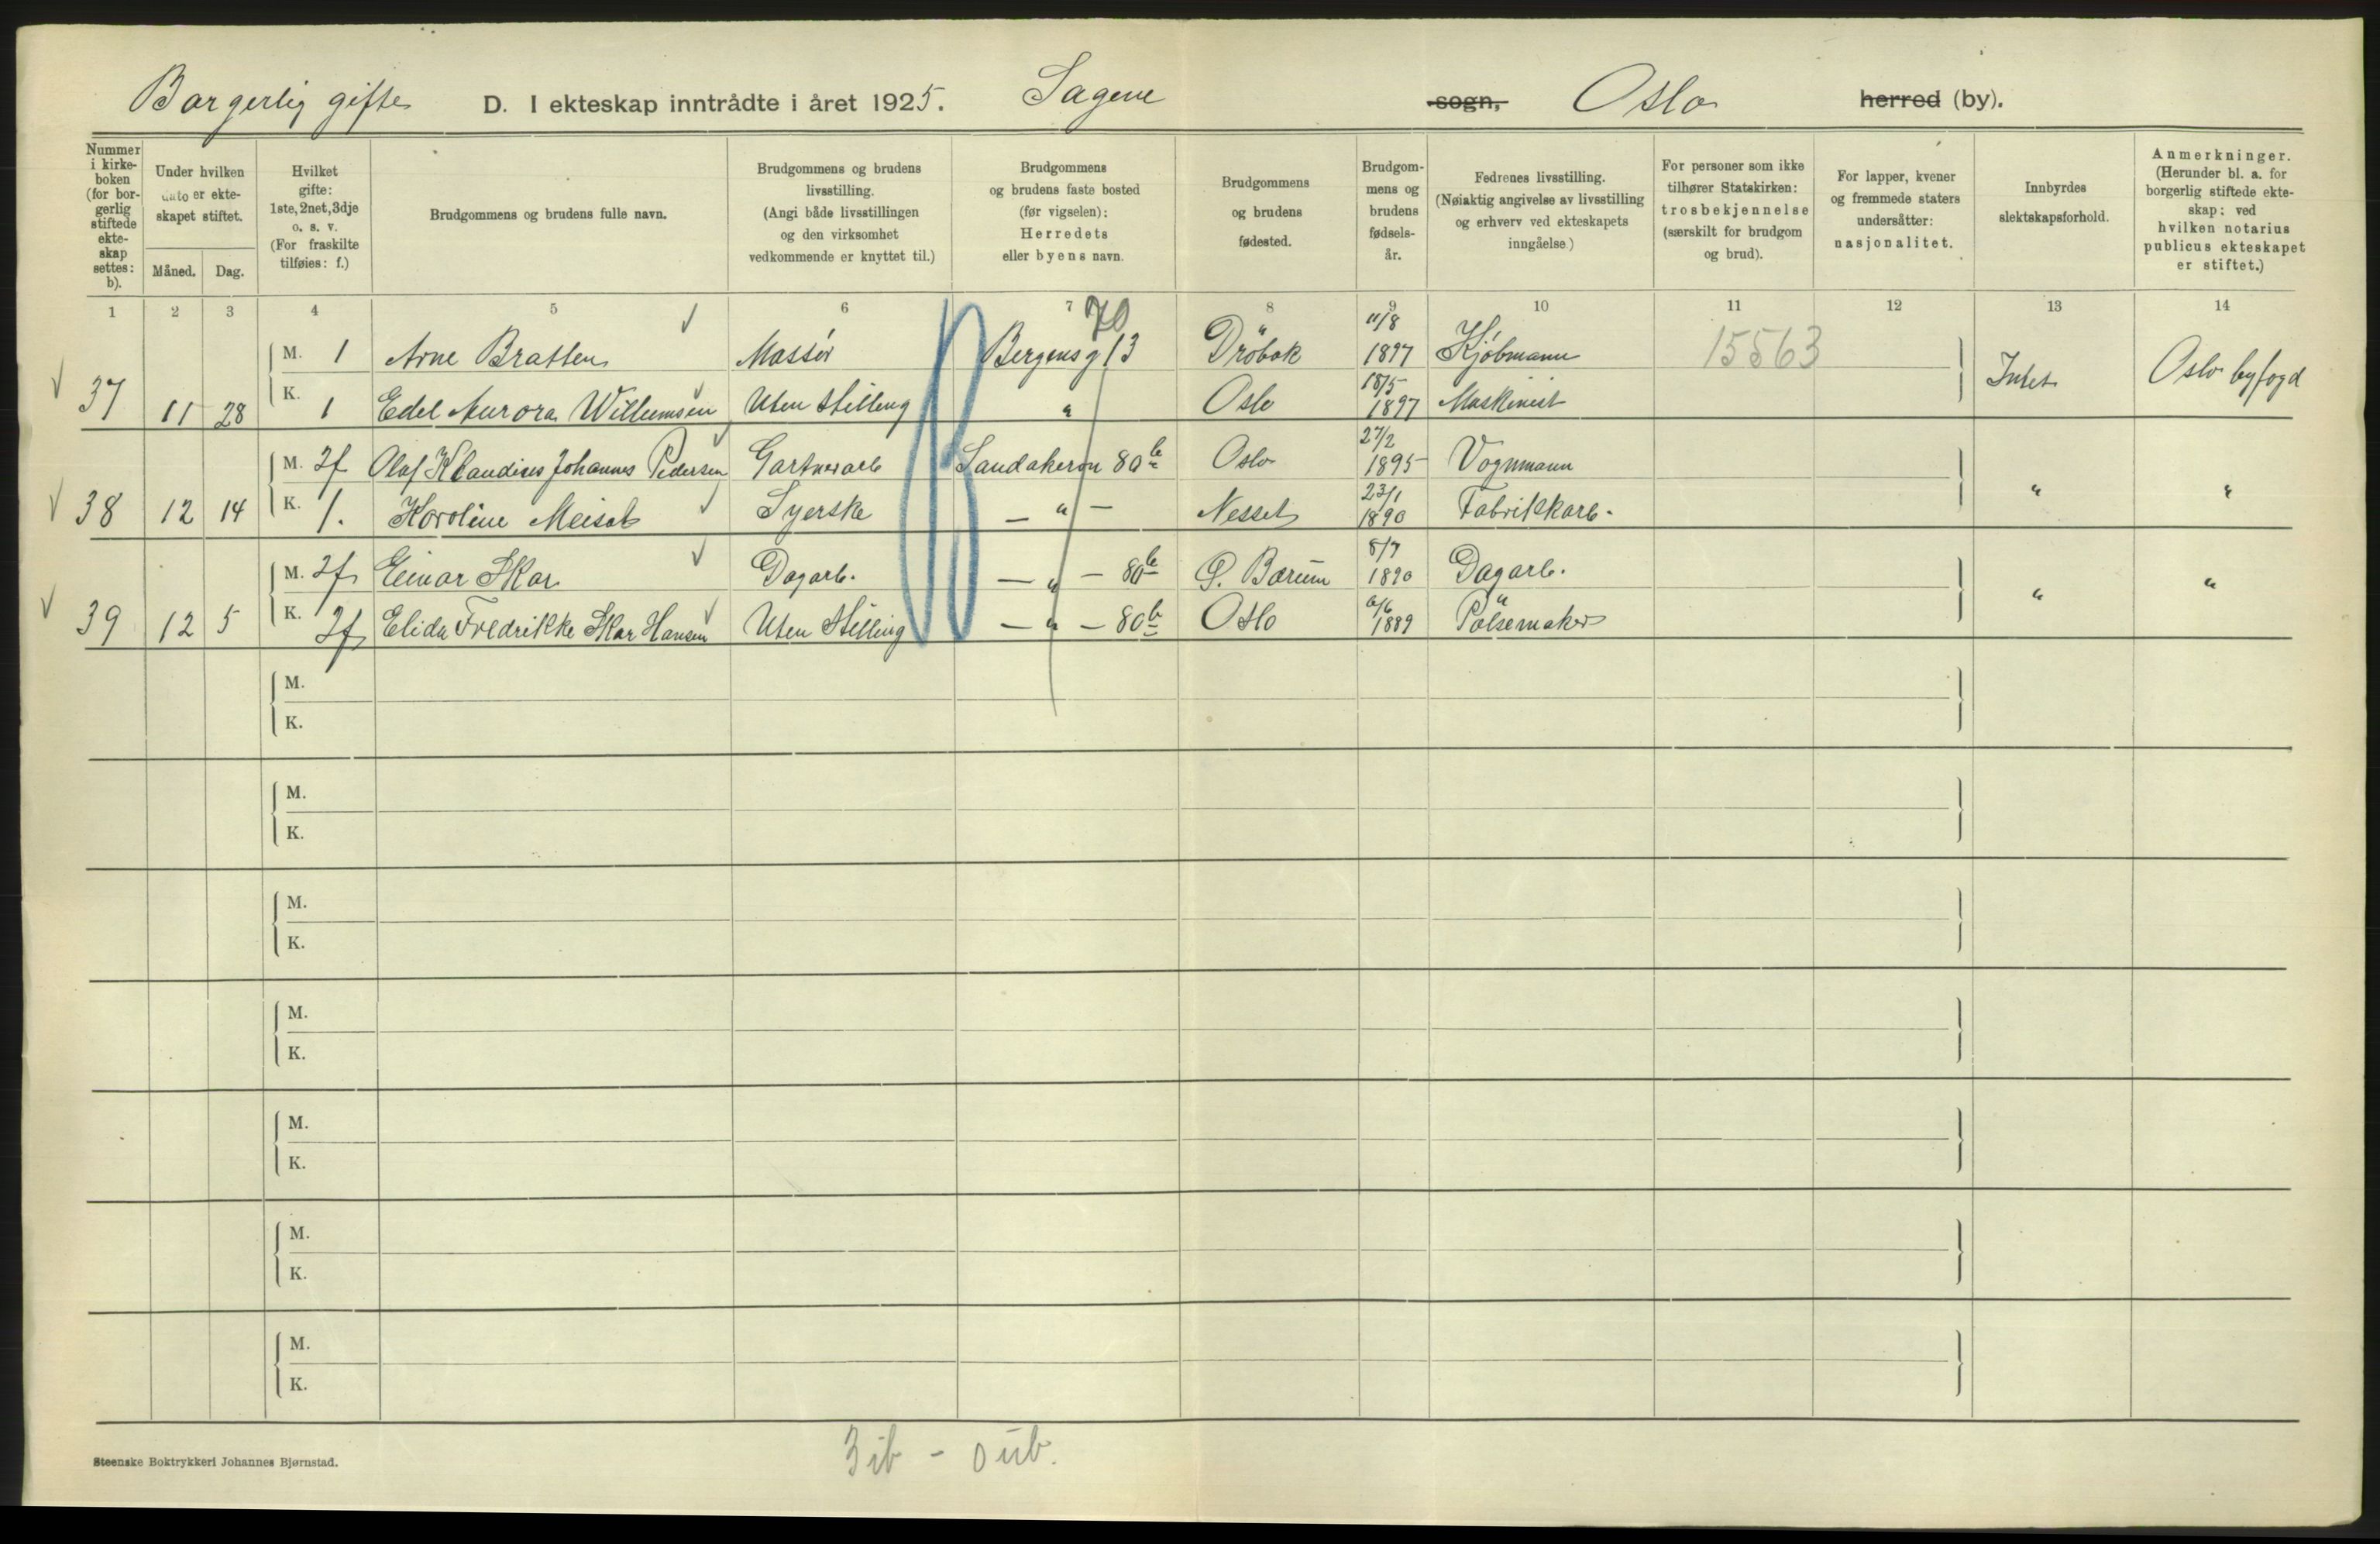 Borgerlig gifte D. I ekteskap inntrådte i året 1925. Sagene sogn, Oslo herred (by).
Nummer i kirke-boken (for bor-gerlig stiftede ekte-skap settes: b).
Under hvilken dato er ekte-skapet stiftet.
Måned. Dag.
Hvilket gifte: 1ste, 2net, 3dje o. s. v. (For fraskilte tilføies: f.)
Brudgommens og brudens fulle navn.
Brudgommens og brudens livsstilling. (Angi både livsstillingen og den virksomhet vedkommende er knyttet til.)
Brudgommens og brudens faste bosted (før vigselen): Herredets eller byens navn.
Brudgommens og brudens fødested.
Brudgom-mens og brudens fødsels-år.
Fedrenes livsstilling. (Nøiaktig angivelse av livsstilling og erhverv ved ekteskapets inngåelse.)
For personer som ikke tilhører Statskirken: trosbekjennelse (særskilt for brudgom og brud).
For lapper, kvener og fremmede staters undersåtter: nasjonalitet.
Innbyrdes slektskapsforhold.
Anmerkninger. (Herunder bl. a. for borgerlig stiftede ekte-skap: ved hvilken notarius publicus ekteskapet er stiftet.)
1 2 3 4 5 6 7 8 9 10 11 12 13 14
70
M. 1 Arne Bratten Massør Bergensg 13 Dröbak 11/8 1897 Kjøbmann 15563
37 11 28 Intet Oslo byfogd
K. 1 Edel Aurora Willumsen Uten Stilling " Oslo 18/5 1897 Maskinist
M. 2f Olaf Klaudius Johannes Pedersen Gartnerarb Sandakervn 80b Oslo 27/2 1895 Vognmann
38 12 14 " "
K. 1. Karoline Meisal Syerske — " — Nesset 23/1 1890 Fabrikkarb.
M. 2f Einar Skar Dagarb. — " — 80b Ø. Bærum 8/7 1890 Dagarb.
39 12 5 " "
K. 2f Elida Fredrikke Skar Hansen Uten Stilling — " — 80b Oslo 6/6 1889 Pölsemaker
M.
K.
M.
K.
M.
K.
M.
K.
M.
K.
M.
K.
M.
K.
Steenske Boktrykkeri Johannes Bjørnstad.
3 ib - 0 uib.